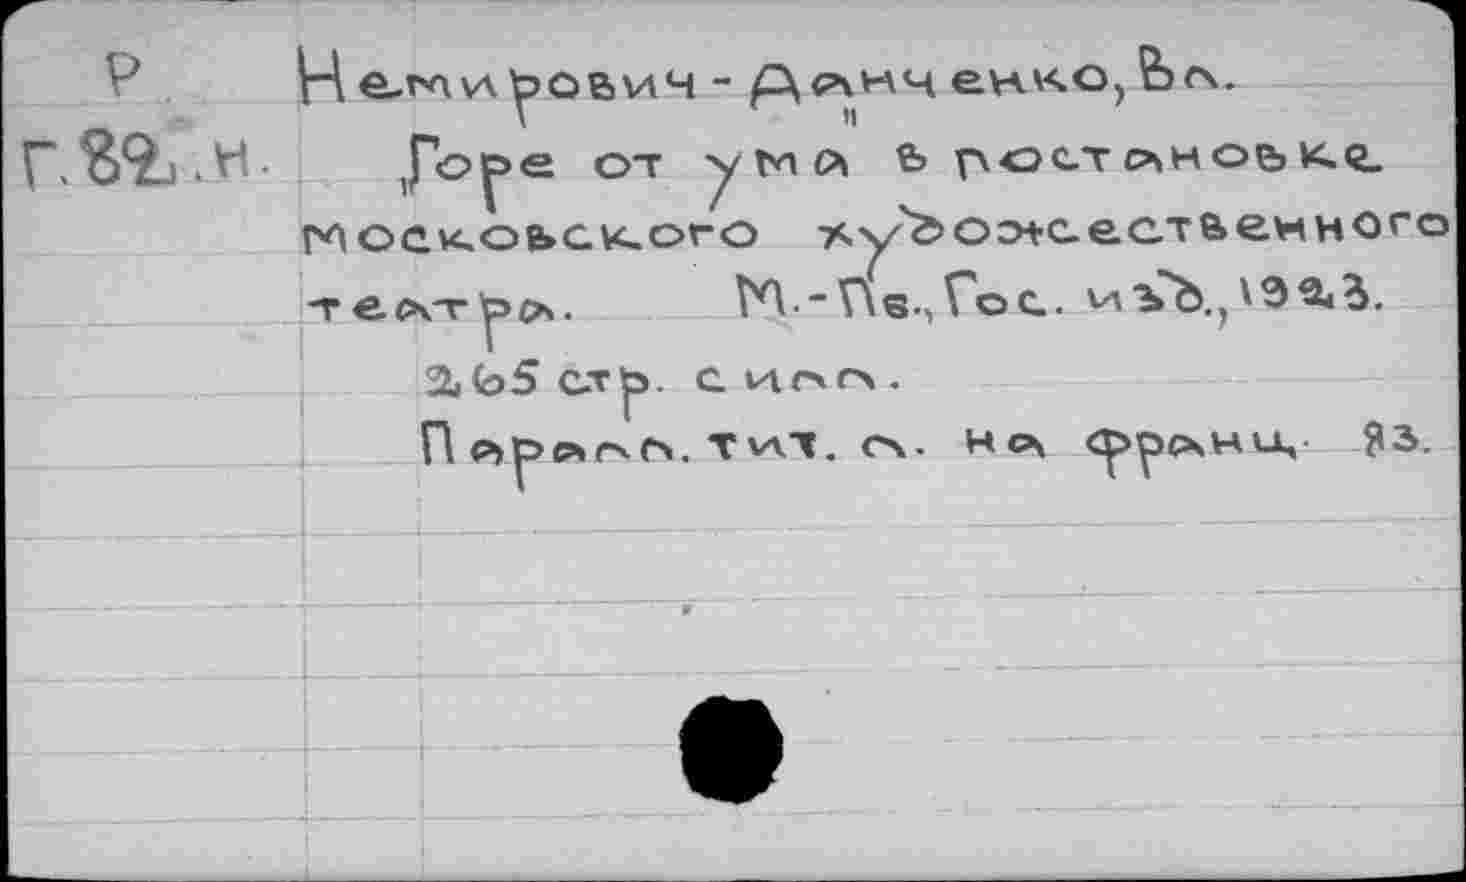 Р Немирович-Данченко, Вл.
Г.82.н. „Горе от ума" в постановке
московского художественного
театра. М.-Пв., Гос. изд., 1923.
265 стр. с илл.
Паралл. тит. л. на франц. яз.